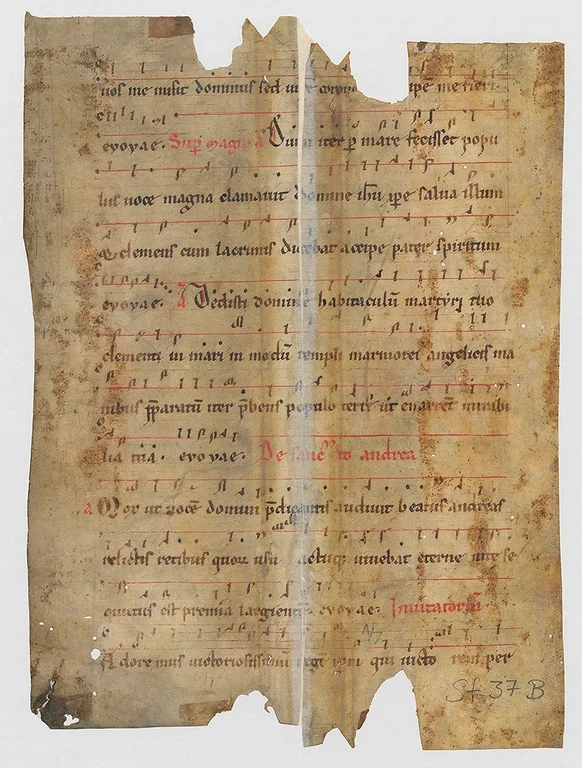 uos me misit dominus sed ure coron ipse me fieri
evovae. Sup magn a Cum iter p mare fecisset popu
lus uoce magna clamauit domine ihu xpe salua illum
& clemens cum lacrimis dicebat accipe pater spiritum
evovae. a Dedisti domine habitaculu martyri tuo
clementi in mari in modu templi marmorei angelicis ma
nibus pparatu iter pbens populo terre ut enarret mirabi
lia tua. evovae. De sancto andrea
a Mox ut uoce domini pdicantis audiuit beatus andreas
relictis retibus quorum usu actuque uiuebat eterne uite se
cutus est premia largientis evovae. Inuitatoriu
N7
Adoremus uictoriosissimum regi xpm qui uicto per
Sf 37 B